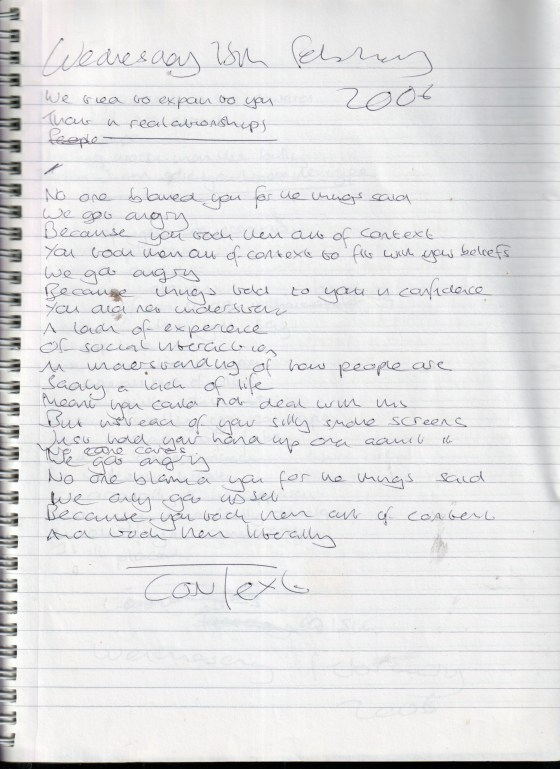 Wednesday 15th February
2006
We tried to explain to you
That in realationships
People
No one blamed you for the things said
We got angry
Because you took them out of context
You took them out of context to fit with your beleifs
We got angry
Because things told to you in confidence
You did not understand
A lack of experience
Of social interaction
An understanding of how people are
Sadly a lack of life
Meant you could not deal with this
But instead of your silly smoke screens
Just hold your hand up and admit it
We
We got angry
No one blamed you for the things said
We only got upset
Because you took them out of context
And took them literally
Context